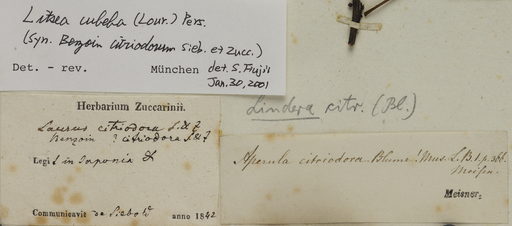 Litsea cubeba (Lour.) Pers.
(Syn. Benzoin citriodorum Sieb. et Zucc.)
Det. - rev. München det. S. Fujii
Jan. 30, 2001
Lindera citr. (Bl.)
Herbarium Zuccarinii.
Laurus citriodora S. & Z
Benzoin ? citriodora S. & Z
Legit in Japonia
Communicavit de Siebold anno 1842
Aperula citriodora Blume! Mus. L. B. I p. 366.
Meisner.